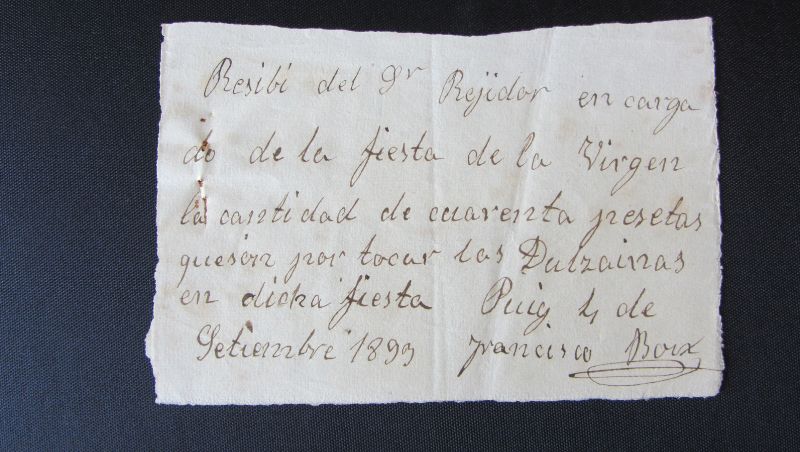 Resibi del Sr Rejidor en carga
do de la fiesta de la Virgen
la cantidad de cuarenta pesetas
queson por tocar las Dulzainas
en dicha fiesta Puig 4 de
Setiembre 1893 Francisco Boix